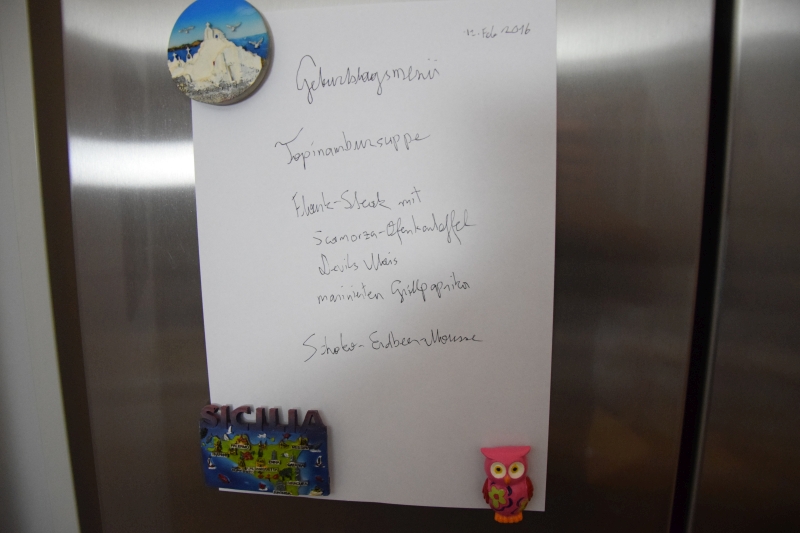 Feb 2016
Geburtstagsmenü
Topinambursuppe
Flank-Steak mit
Scamorza-Ofenkartoffel
Devils Mais
marinierten Grillpaprika
Schoko-Erdbeer-Mousse
SICILIA